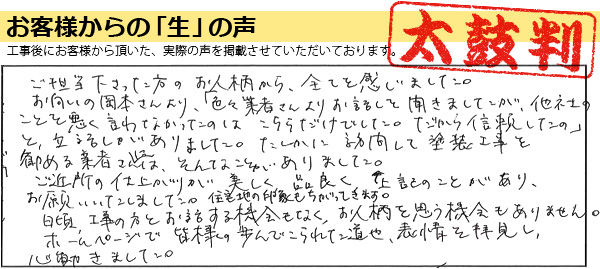 お客様からの「生」の声
工事後にお客様から頂いた、実際の声を掲載させていただいております。
太鼓判
ご担当下さった方のお人柄から、全てを感じました。
お向いの岡本さんより、「色々業者さんよりお話しを聞きましたが、他社の
ことを悪く言わなかったのは こちらだけでした。だから信頼したの」
と、立話しがありました。たしかに訪問して塗装工事を
勧める業者さんは、そんなことがありました。
ご近所の仕上がりが 美しく、品良く、上記のことがあり、
お願いいたしました。住宅地の印象もちがってきます。
日頃、工事の方とお話する機会もなく、お人柄を思う機会もありません。
ホームページで 皆様の歩んでこられた道や、表情を拝見し、
心動きました。